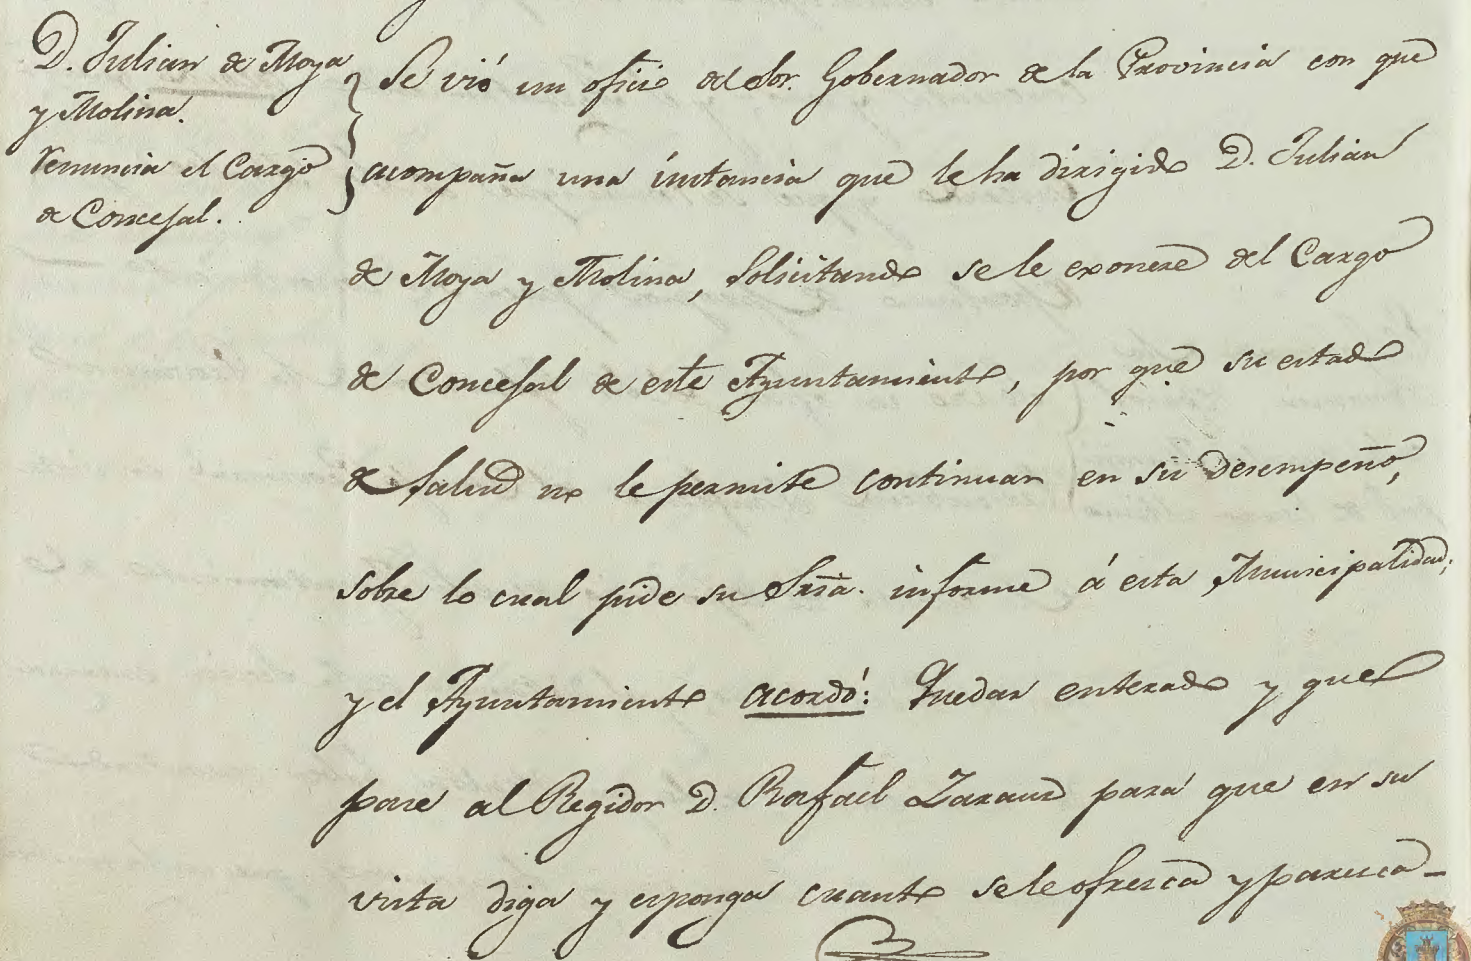 D. Julian de Moya
y Molina.
renuncia el Cargo
de Concejal.
Se vió un oficio del Sor. Gobernador de la Provincia con que
acompaña una instancia que le ha dirigido D. Julian
de Moya y Molina, Solicitando se le exonere del Cargo
de Concejal de este Ayuntamiento, por que su estado
de salud no le permite continuar en su desempeño,
sobre lo cual pide su Sria. informe á esta Municipalidad;
y el Ayuntamiento acordó: Quedar enterado y que
pase al Regidor D. Rafael Zaraus para que en su
vista diga y esponga cuanto se le ofresca y paresca-